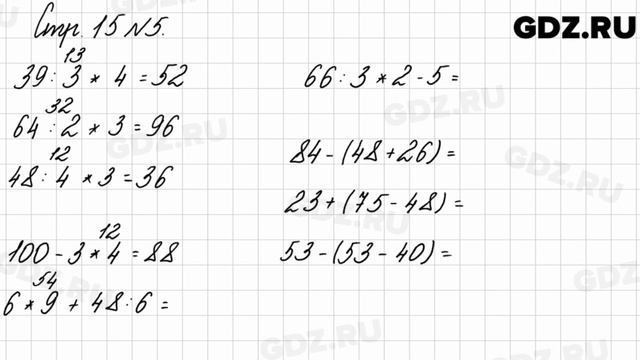 Стр. 15 №5.
GDZ.RU
13
39 : 3 * 4 = 52
32
64 : 2 * 3 = 96
12
48 : 4 * 3 = 36
12
100 - 3 * 4 = 88
54
6 * 9 + 48 : 6 =
66 : 3 * 2 - 5 =
84 - (48 + 26) =
23 + (75 - 48) =
53 - (53 - 40) =
GDZ.RU
GDZ.RU
GDZ.RU
GDZ.RU
GDZ.RU
GDZ.RU